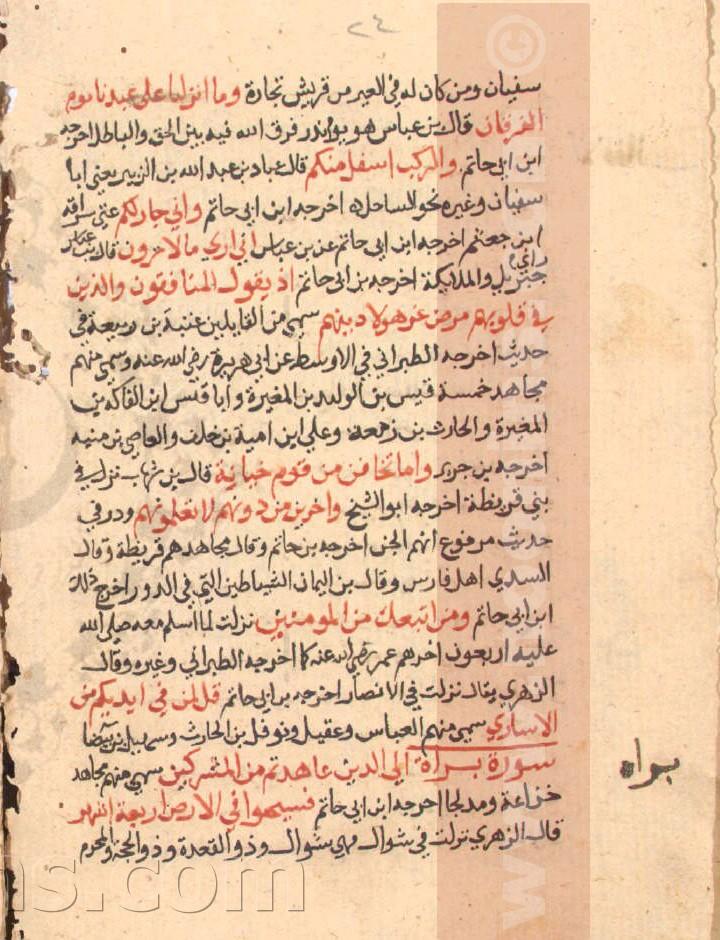 ٢٤
سفيان ومن كان له في العير من قريش تجارة وما انزلنا على عبدنا يوم
الفرقان قال بن عباس هو يوم بدر فرق الله فيه بين الحق والباطل اخرجه
ابن ابي حاتم والركب اسفل منكم قال عباد بن عبد الله بن الزبير يعني ابا
سفيان وغيره نحو الساحل اخرجه ابن ابي حاتم واني جار لكم عنى سراقة
ابن جعثم اخرجه ابن ابي حاتم عن بن عباس اني ارى ما لا ترون قال بن عباس
راى جبريل والملايكة اخرجه بن ابي حاتم اذ يقول المنافقون والذين
في قلوبهم مرض غر هولاء دينهم سمي من القايلين عتبة بن ربيعة في
حديث اخرجه الطبراني في الاوسط عن ابي هريرة رضي الله عنه وسمى منهم
مجاهد خمسة قيس بن الوليد بن المغيرة وابا قيس ابن الفاكه بن
المغيرة والحارث بن زمعة وعلي ابن امية بن خلف والعاصي بن منبه
اخرجه بن جرير واما تخافن من قوم خيانة قال بن شهاب نزلت في
بني قريظة اخرجه ابو الشيخ واخرين من دونهم لا تعلمونهم ورد في
حديث مرفوع انهم الجن اخرجه بن حاتم وقال مجاهد هم قريظة وقال
السدي اهل فارس وقال بن اليمان الشياطين التي في الدور اخرج ذلك
ابن ابي حاتم ومن اتبعك من المومنين نزلت لما اسلم معه صلى الله
عليه اربعون اخرهم عمر رضي الله عنه كما اخرجه الطبراني وغيره وقال
الزهري يقال نزلت في الانصار اخرجه بن ابي حاتم قل لمن في ايديكم من
الاسارى سمي منهم العباس وعقيل ونوفل بن الحارث وسهيل بن بيضا
سورة براة الى الذين عاهدتم من المشركين سمي منهم مجاهد
خزاعة ومدلجا اخرجه ابن ابي حاتم فسيحوا في الارض اربعة اشهر
قال الزهري نزلت في شوال فهي شوال وذو القعدة وذو الحجة والمحرم
براه